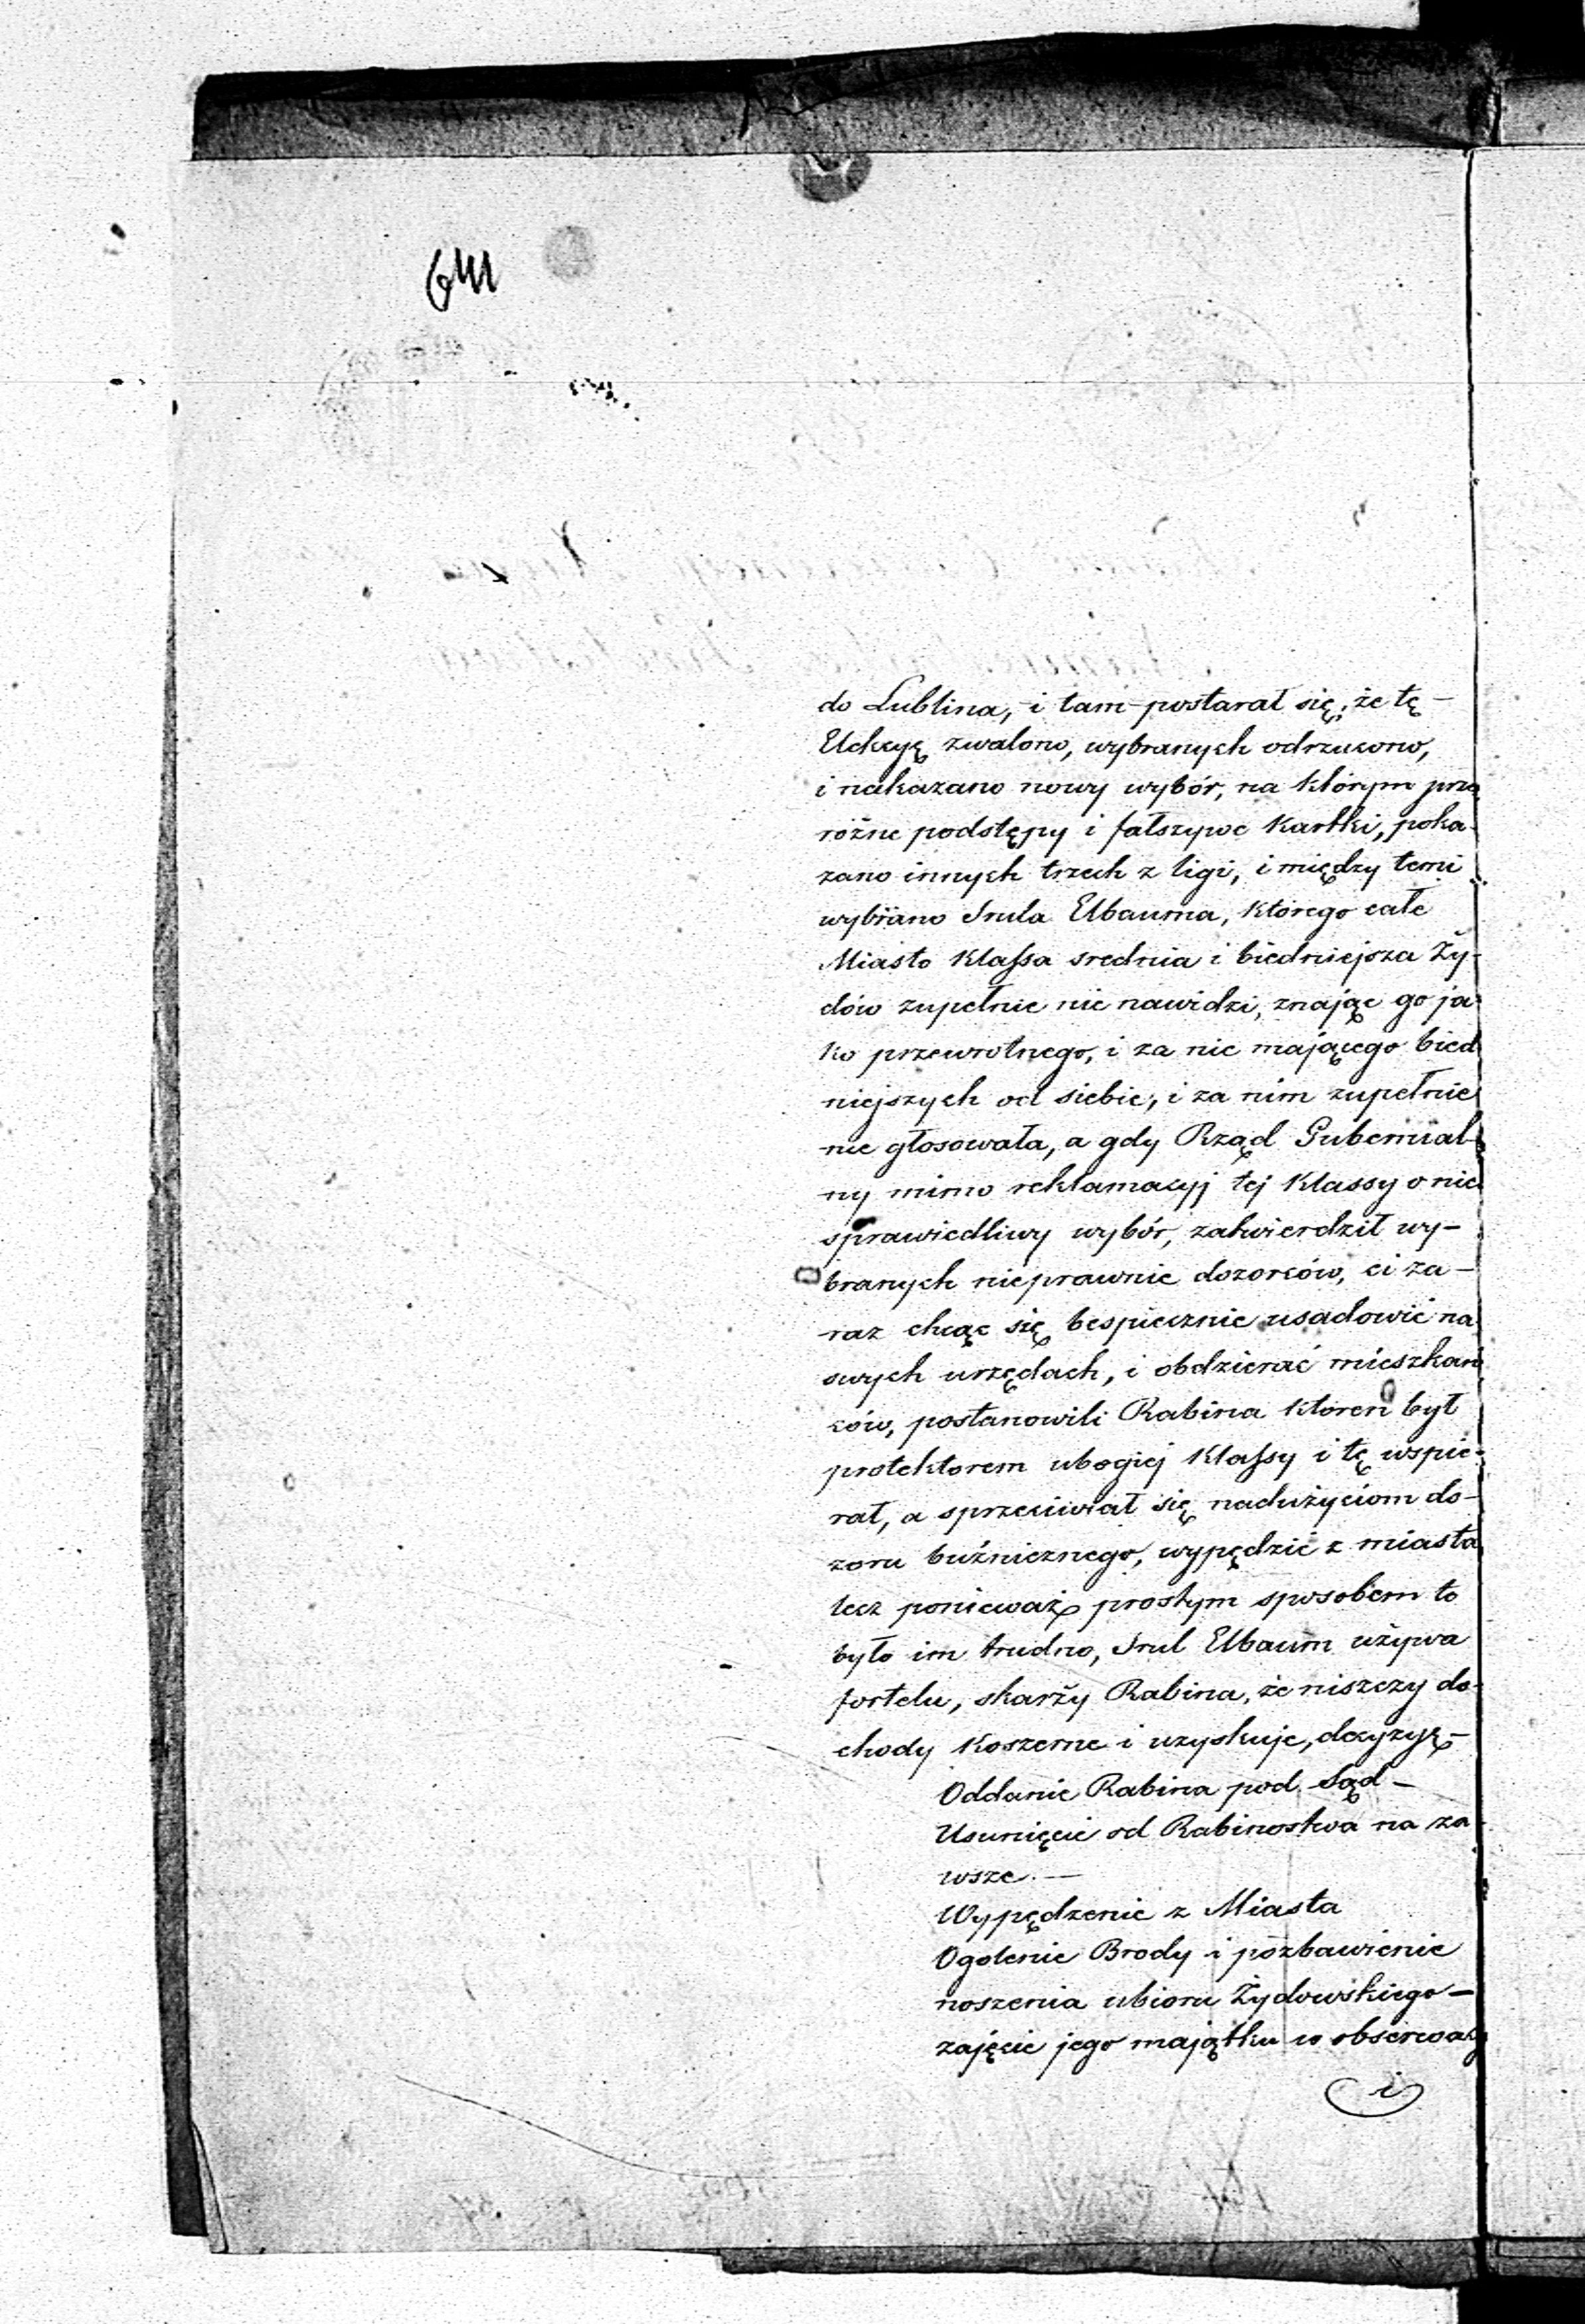 641
do Lublina, i tam postarał się, że tę —
Elekcyę zwalono, wybranych odrzucono,
i nakazano nowy wybór, na którym prze
różne podstępy i fałszywe Kartki, poka-
zano innych trzech z ligi, i między temi
wybrano Srula Elbauma, którego całe
Miasto Klassa srednia i biedniejsza Ży-
dów zupełnie nie nawidzi, znając go ja-
ko przewrotnego, i za nic mającego bied
niejszych od siebie, i za nim zupełnie
nie głosowała, a gdy Rząd Gubernial-
ny mimo reklamacyj tej Klassy o nie
sprawiedliwy wybór, zatwierdził wy-
branych nieprawnie dozorców, ci za-
raz chcąc się bespiecznie usadowić na
swych urzędach, i obdzierać mieszkań
ców, postanowili Rabina ktoren był
protektorem ubogiej Klassy i tę wspie-
rał, a sprzeciwiał się nadużyciom do-
zoru bużnicznego, wypędzić z miasta
lecz ponieważ prostym sposobem to
było im trudno, Srul Elbaum używa
fortelu, skarży Rabina, że niszczy do-
chody Koszerne i uzyskuje, decyzyę —
Oddanie Rabina pod Sąd —
Usunięcie od Rabinostwa na za-
wsze. —
Wypędzenie z Miasta
Ogolenie Brody i pozbawienie
noszenia ubioru Żydowskiego —
zajęcie jego majątku w obserwacy
i